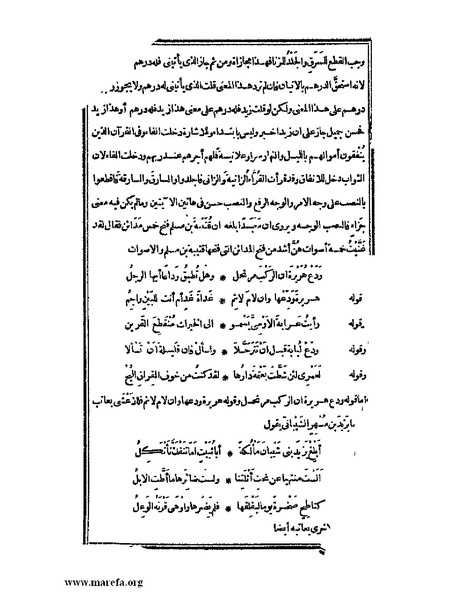 وجب القطع للسرق والجلد للزنا فهذا مجازاة ومن ثم جاز الذى يأتينى فله درهم
لانه استحق الدرهم بالاتيان فان لم ترد هذا المعنى قلت الذى يأتينى له درهم ولا يجوز زيد
درهم على هذا المعنى ولكن لو قلت زيد فله درهم على معنى هذا زيد فله درهم أو هذا زيد
فحسن جميل جاز على ان زيدا خبر وليس بابتداء وللاشارة دخلت الفاء وفى القرآن الذين
ينفقون أموالهم بالليل والنهار سرا وعلانية فلهم أجرهم عند ربهم ودخلت الفاء لان
الثواب دخل للانفاق وقد قرأت القراء الزانية والزانى فاجلدوا والسارق والسارقة فاقطعوا
بالنصب على وجه الامر والوجه الرفع والنصب حسن فى هاتين الآيتين وما لم يكن فيه معنى
جزاء فالنصب الوجه ويروى ان معبدا بلغه ان قتيبة بن مسلم فتح خمس مدائن فقال لقد
غنيت خمسة أصوات هن أشد من فتح المدائن التى فتحها قتيبة بن مسلم والاصوات
ودع هريرة ان الركب مرتحل * وهل تطيق وداعا أيها الرجل
قوله هريرة ودعها وان لام لائم * غداة غد أم أنت للبين واجم
وقوله رأيت عرابة الأوسى يسمو * الى الخيرات منقطع القرين
وقوله ودع لبابة قبل ان تترحلا * واسأل فان قليلة ان تسألا
وقوله لعمرى لئن شطت بعثمة دارها * لقد كنت من خوف الفراق أليح
اما قوله ودع هريرة ان الركب مرتحل وقوله هريرة ودعها وان لام لائم فللاعشى يعاتب
يزيد بن مسهر الشيبانى يقول
أبلغ يزيد بنى شيبان مألكة * أبا ثبيت اما تنفك تأتكل
ألست منتهيا عن نحت أثلتنا * ولست ضائرها ما أطت الابل
كناطح صخرة يوما ليفلقها * فلم يضرها وأوهى قرنه الوعل
اخرى يعاتبه أيضا
www.marefa.org